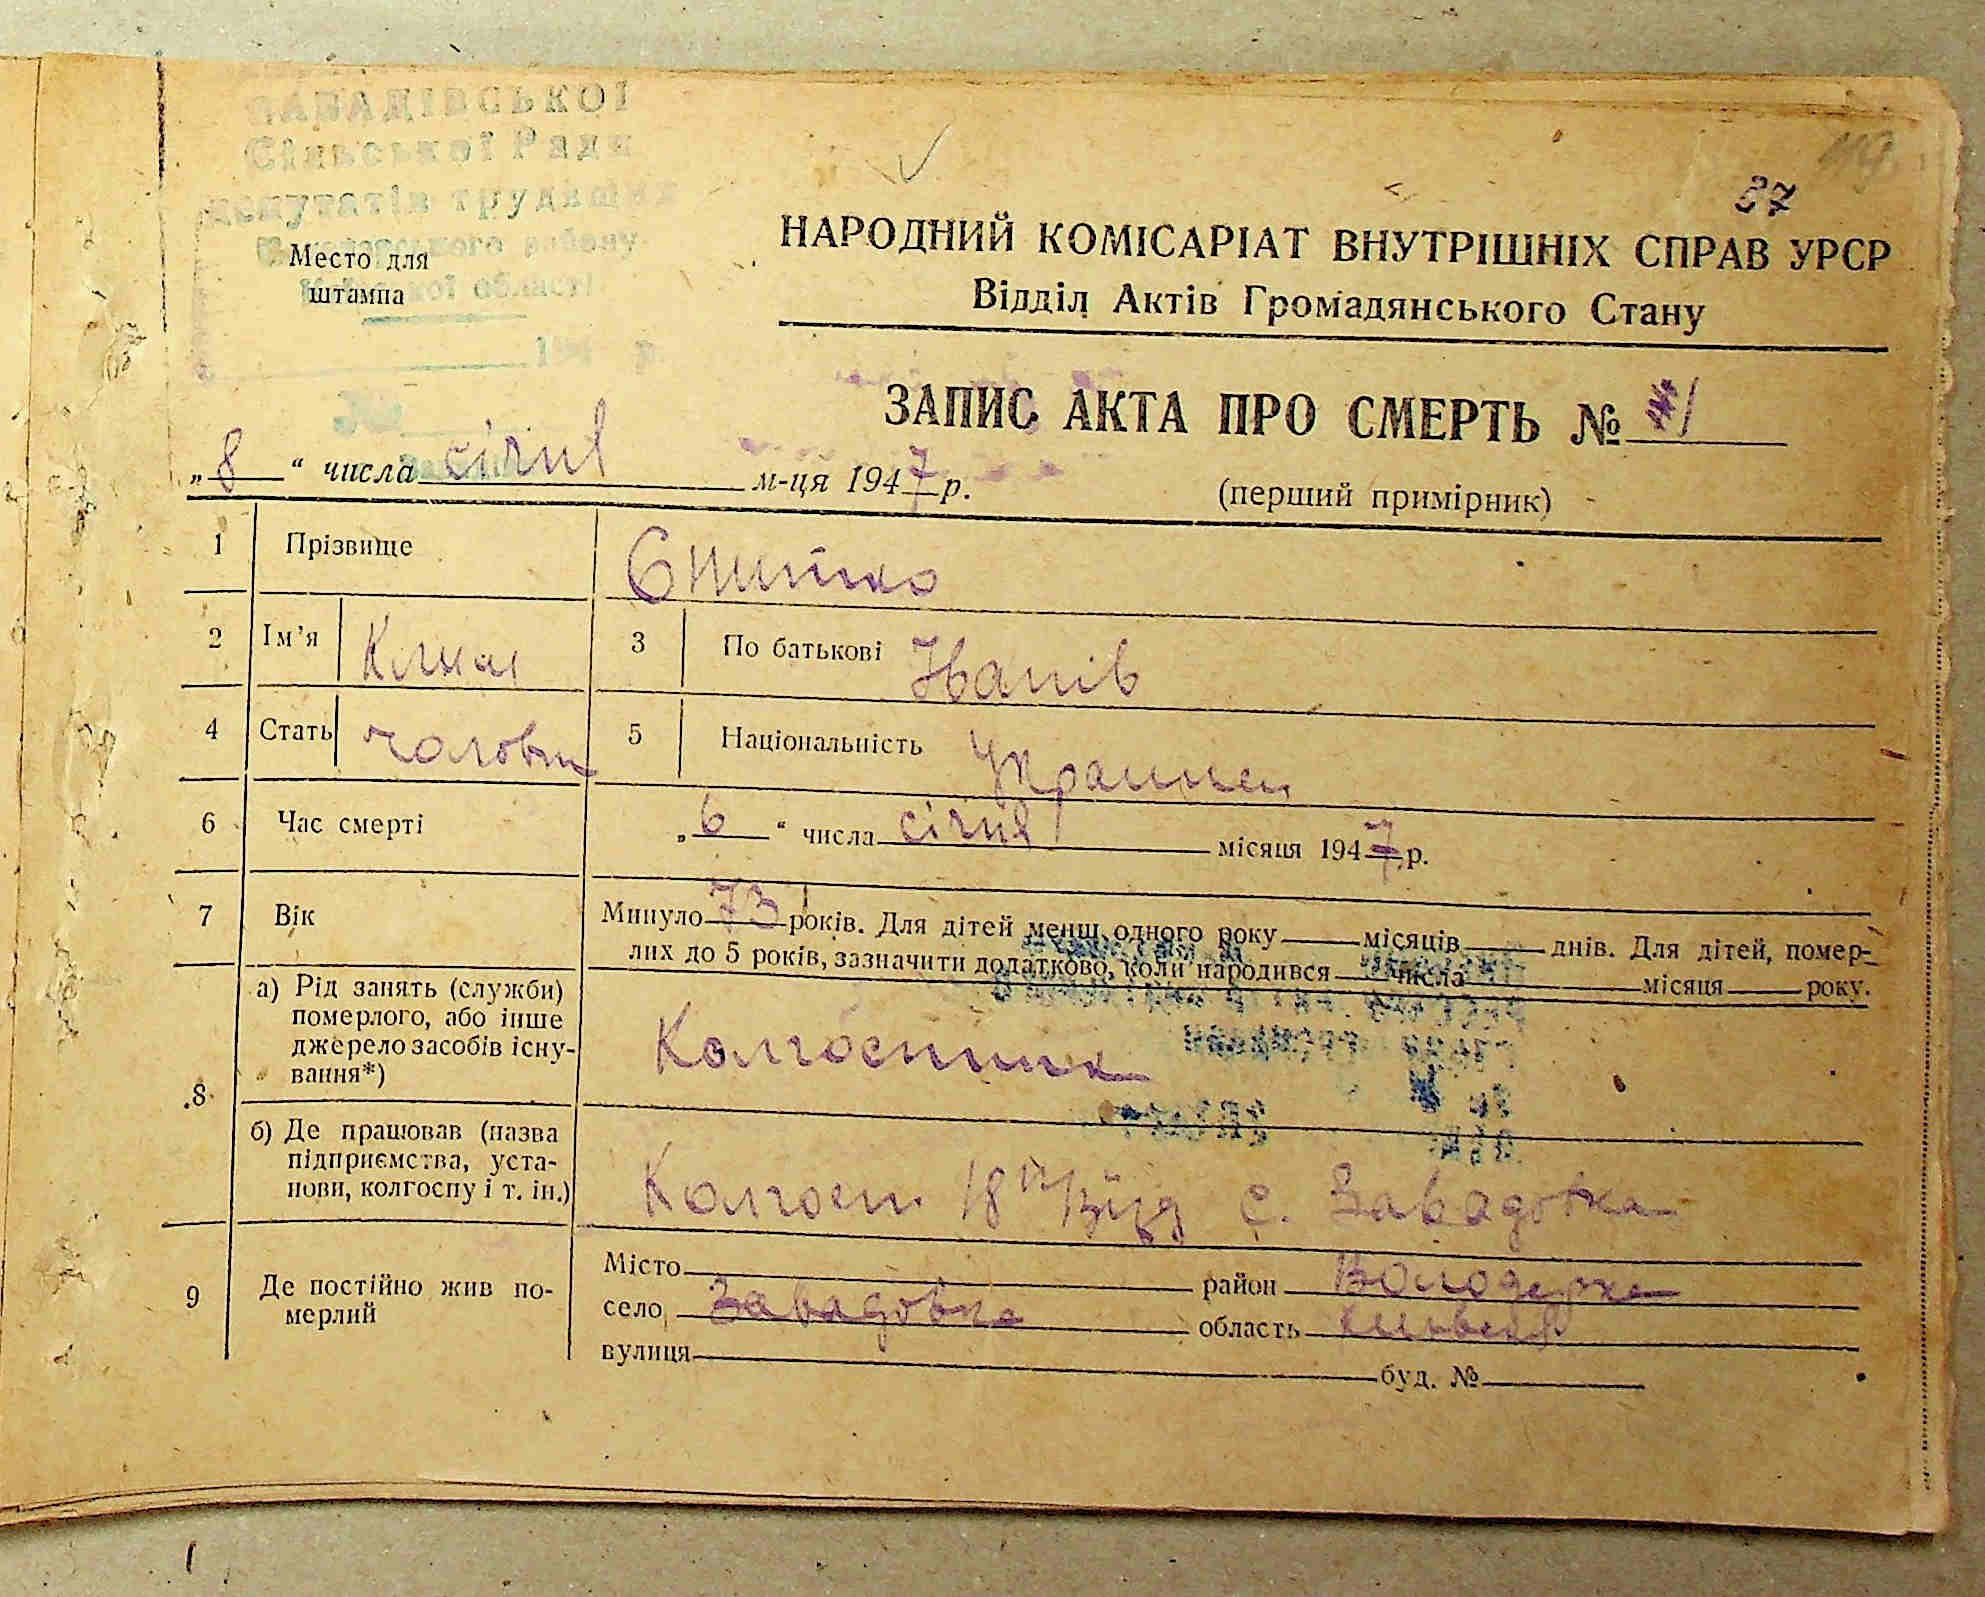 ЗАВАДІВСЬКОЇ
Сільської Ради
депутатів трудящих
району
області
Место для
штампа
194 р.
№
37
НАРОДНИЙ КОМІСАРІАТ ВНУТРІШНІХ СПРАВ УРСР
Відділ Актів Громадянського Стану
ЗАПИС АКТА ПРО СМЕРТЬ № 1
„8“ числа січня м-ця 1947 р.
(перший примірник)
1 Прізвище
2 Ім'я Клим 3 По батькові Іванів
4 Стать чоловік 5 Національність Українец
6 Час смерті „6“ числа січня місяця 1947 р.
7 Вік Минуло 73 років. Для дітей менш одного року місяців днів. Для дітей, помер-
лих до 5 років, зазначити додатково, коли народився числа місяця року.
8 а) Рід занять (служби)
померлого, або інше
джерело засобів існу-
вання*)
Колгоспник
б) Де працював (назва
підприємства, уста-
нови, колгоспу і т. ін.)
Колгосп 18 п/зїзд с. Завадовка
9 Де постійно жив по-
мерлий
Місто район Володарка
село Завадовка область Київська
вулиця буд. №